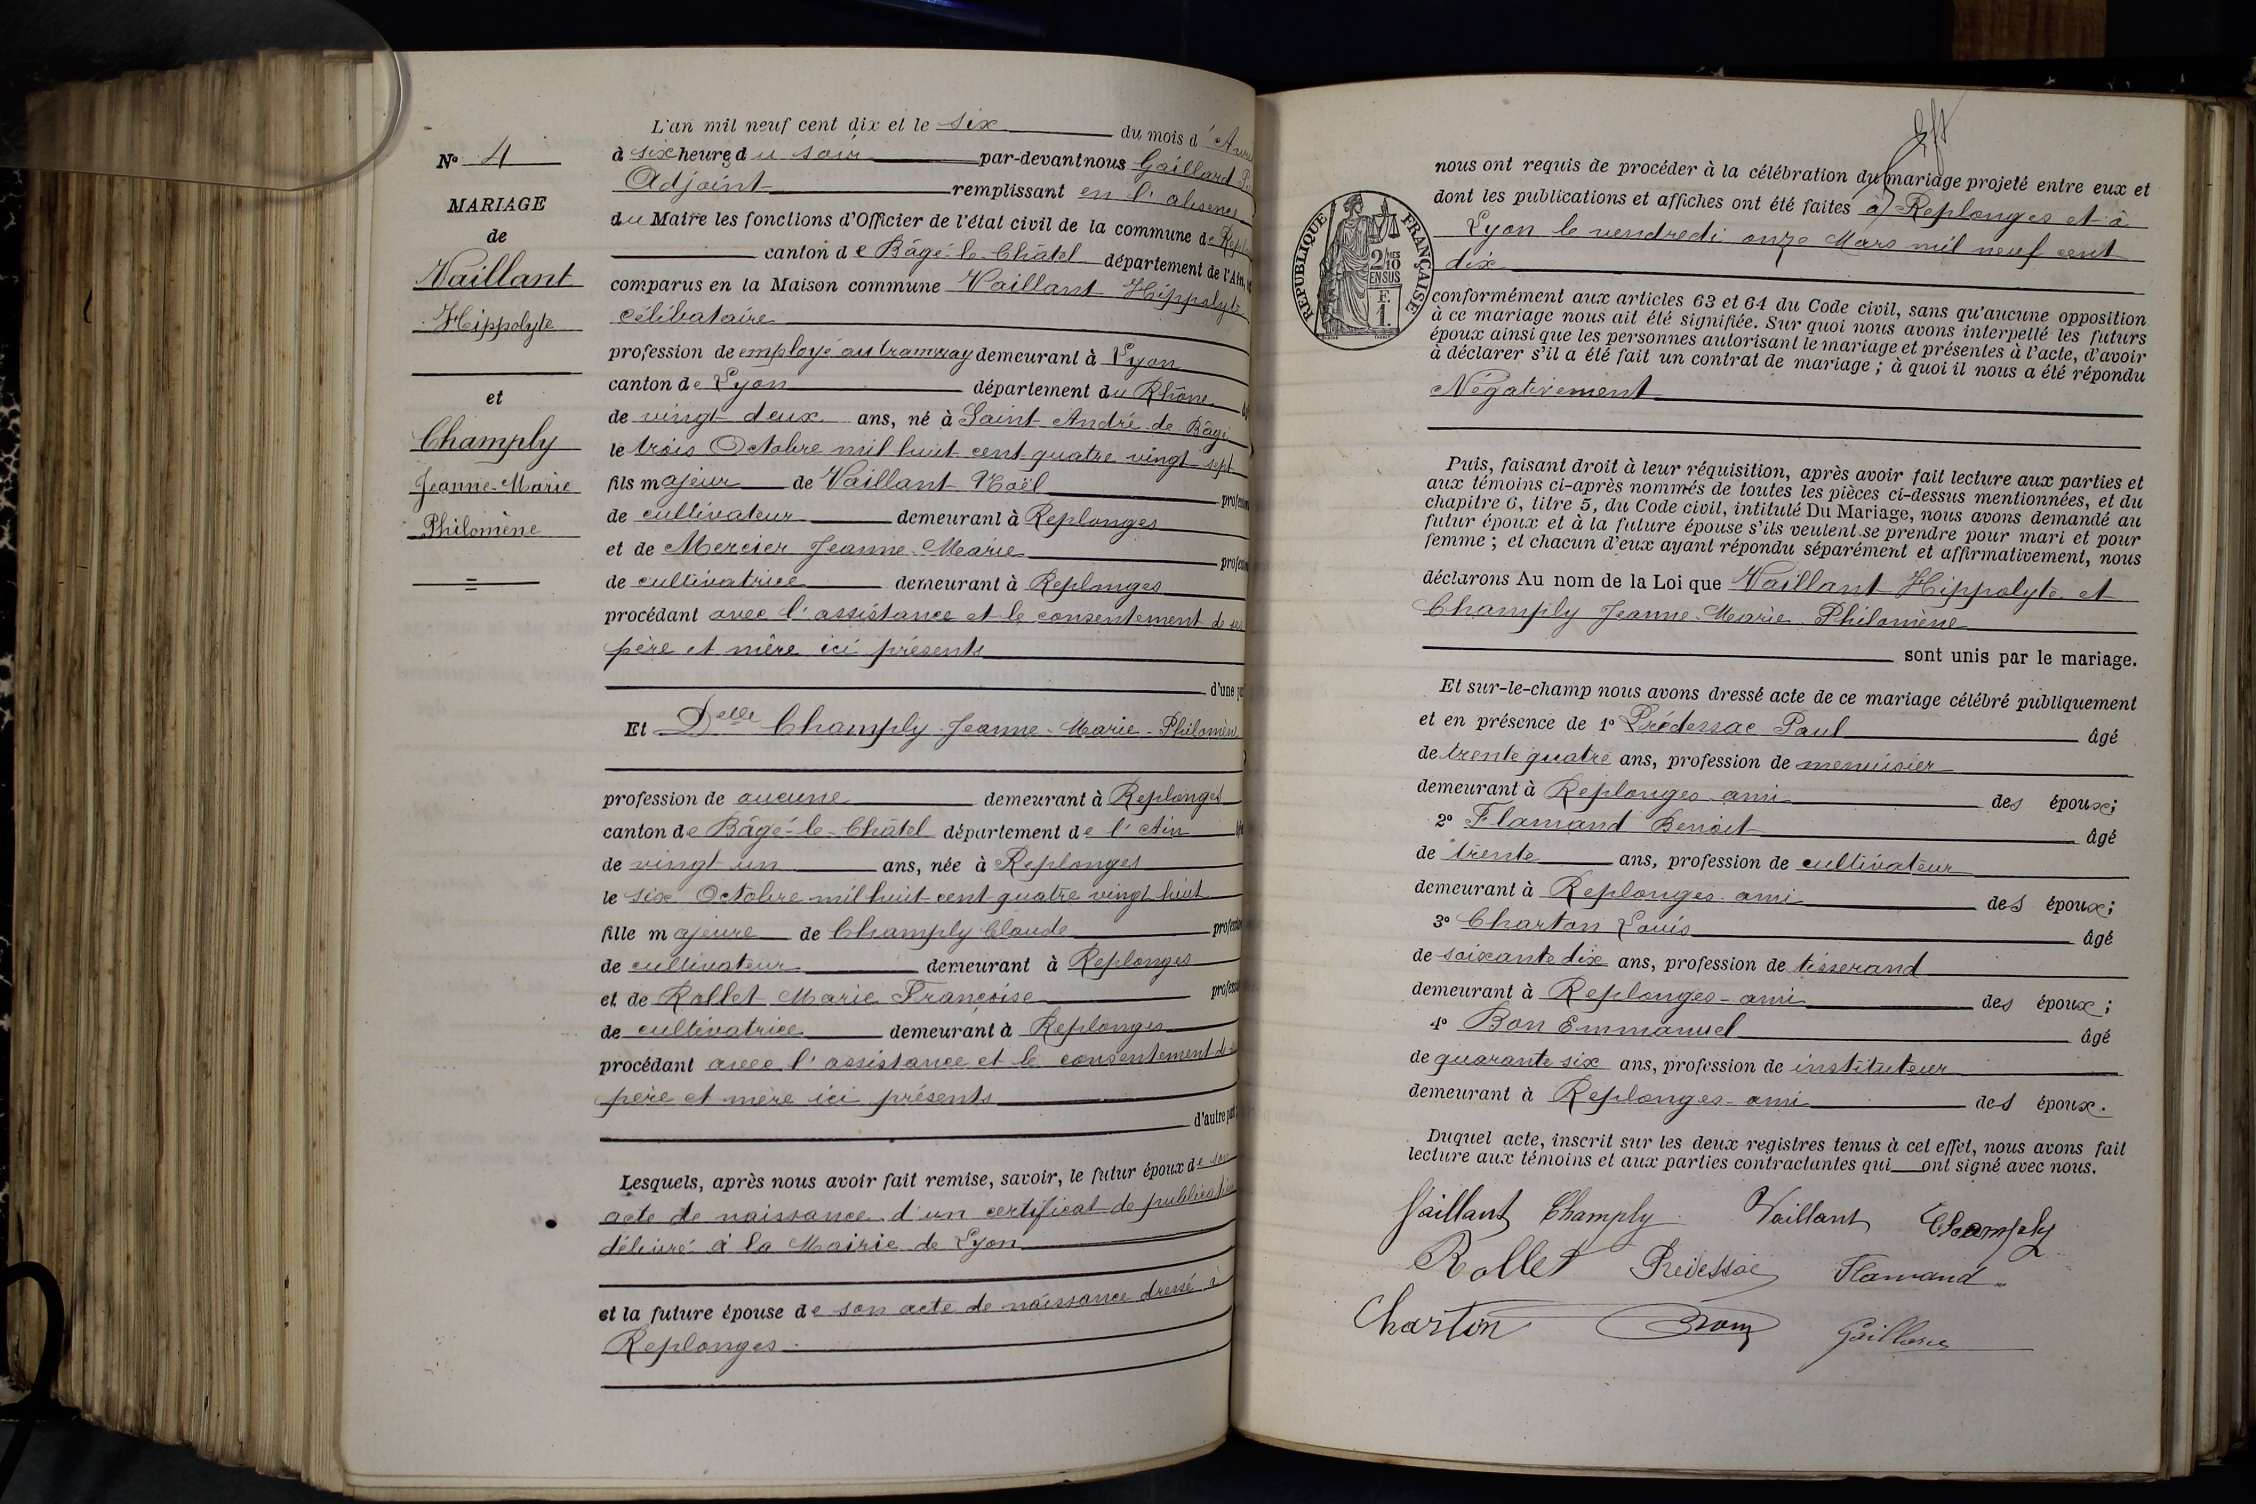 N° 4
MARIAGE
de
Vaillant
Hippolyte
et
Champly
Jeanne-Marie
Philomène
L'an mil neuf cent dix et le six du mois d'
à six heures du soir par-devant nous Gaillard
Adjoint remplissant en l'absence
du Maire les fonctions d'Officier de l'état civil de la commune de
canton de Bâgé-le-Châtel département de l'Ain
comparus en la Maison commune Vaillant Hippolyte
célibataire
profession de employé au tramway demeurant à Lyon
canton de Lyon département du Rhône
de vingt-deux ans, né à Saint-André-de-Bâgé
le trois Octobre mil huit cent quatre vingt sept
fils majeur de Vaillant Noël profession
de cultivateur demeurant à Replonges
et de Mercier Jeanne-Marie profession
de cultivatrice demeurant à Replonges
procédant avec l'assistance et le consentement de ses
père et mère ici présents
d'une
Et Delle Champly Jeanne-Marie-Philomène
profession de aucune demeurant à Replonges
canton de Bâgé-le-Châtel département de l'Ain
de vingt-un ans, née à Replonges
le six Octobre mil huit cent quatre vingt huit
fille majeure de Champly Claude profession
de cultivateur demeurant à Replonges
et de Rollet Marie Françoise profession
de cultivatrice demeurant à Replonges
procédant avec l'assistance et le consentement de
père et mère ici présents
d'autre part
Lesquels, après nous avoir fait remise, savoir, le futur époux de son
acte de naissance d'un certificat de publication
délivré à la Mairie de Lyon
et la future épouse de son acte de naissance dressé à
Replonges.
nous ont requis de procéder à la célébration du mariage projeté entre eux et
dont les publications et affiches ont été faites à Replonges et à
Lyon le vendredi onze Mars mil neuf cent
dix
REPUBLIQUE FRANÇAISE
2/10
EN SUS
F.
1.
conformément aux articles 63 et 64 du Code civil, sans qu'aucune opposition
à ce mariage nous ait été signifiée. Sur quoi nous avons interpellé les futurs
époux ainsi que les personnes autorisant le mariage et présentes à l'acte, d'avoir
à déclarer s'il a été fait un contrat de mariage ; à quoi il nous a été répondu
Négativement
Puis, faisant droit à leur réquisition, après avoir fait lecture aux parties et
aux témoins ci-après nommés de toutes les pièces ci-dessus mentionnées, et du
chapitre 6, titre 5, du Code civil, intitulé Du Mariage, nous avons demandé au
futur époux et à la future épouse s'ils veulent se prendre pour mari et pour
femme ; et chacun d'eux ayant répondu séparément et affirmativement, nous
déclarons Au nom de la Loi que Vaillant Hippolyte et
Champly Jeanne-Marie Philomène
sont unis par le mariage.
Et sur-le-champ nous avons dressé acte de ce mariage célébré publiquement
et en présence de 1° Prédessac Paul âgé
de trente quatre ans, profession de menuisier
demeurant à Replonges ami des époux ;
2° Flamand Benoit âgé
de trente ans, profession de cultivateur
demeurant à Replonges ami des époux ;
3° Charton Louis âgé
de soixante dix ans, profession de tisserand
demeurant à Replonges-ami des époux ;
4° Bon Emmanuel âgé
de quarante six ans, profession de instituteur
demeurant à Replonges-ami des époux.
Duquel acte, inscrit sur les deux registres tenus à cet effet, nous avons fait
lecture aux témoins et aux parties contractantes qui ont signé avec nous.
Vaillant Champly Vaillant Champly
Rollet Prédessac Flamand
Charton Bon Gaillard